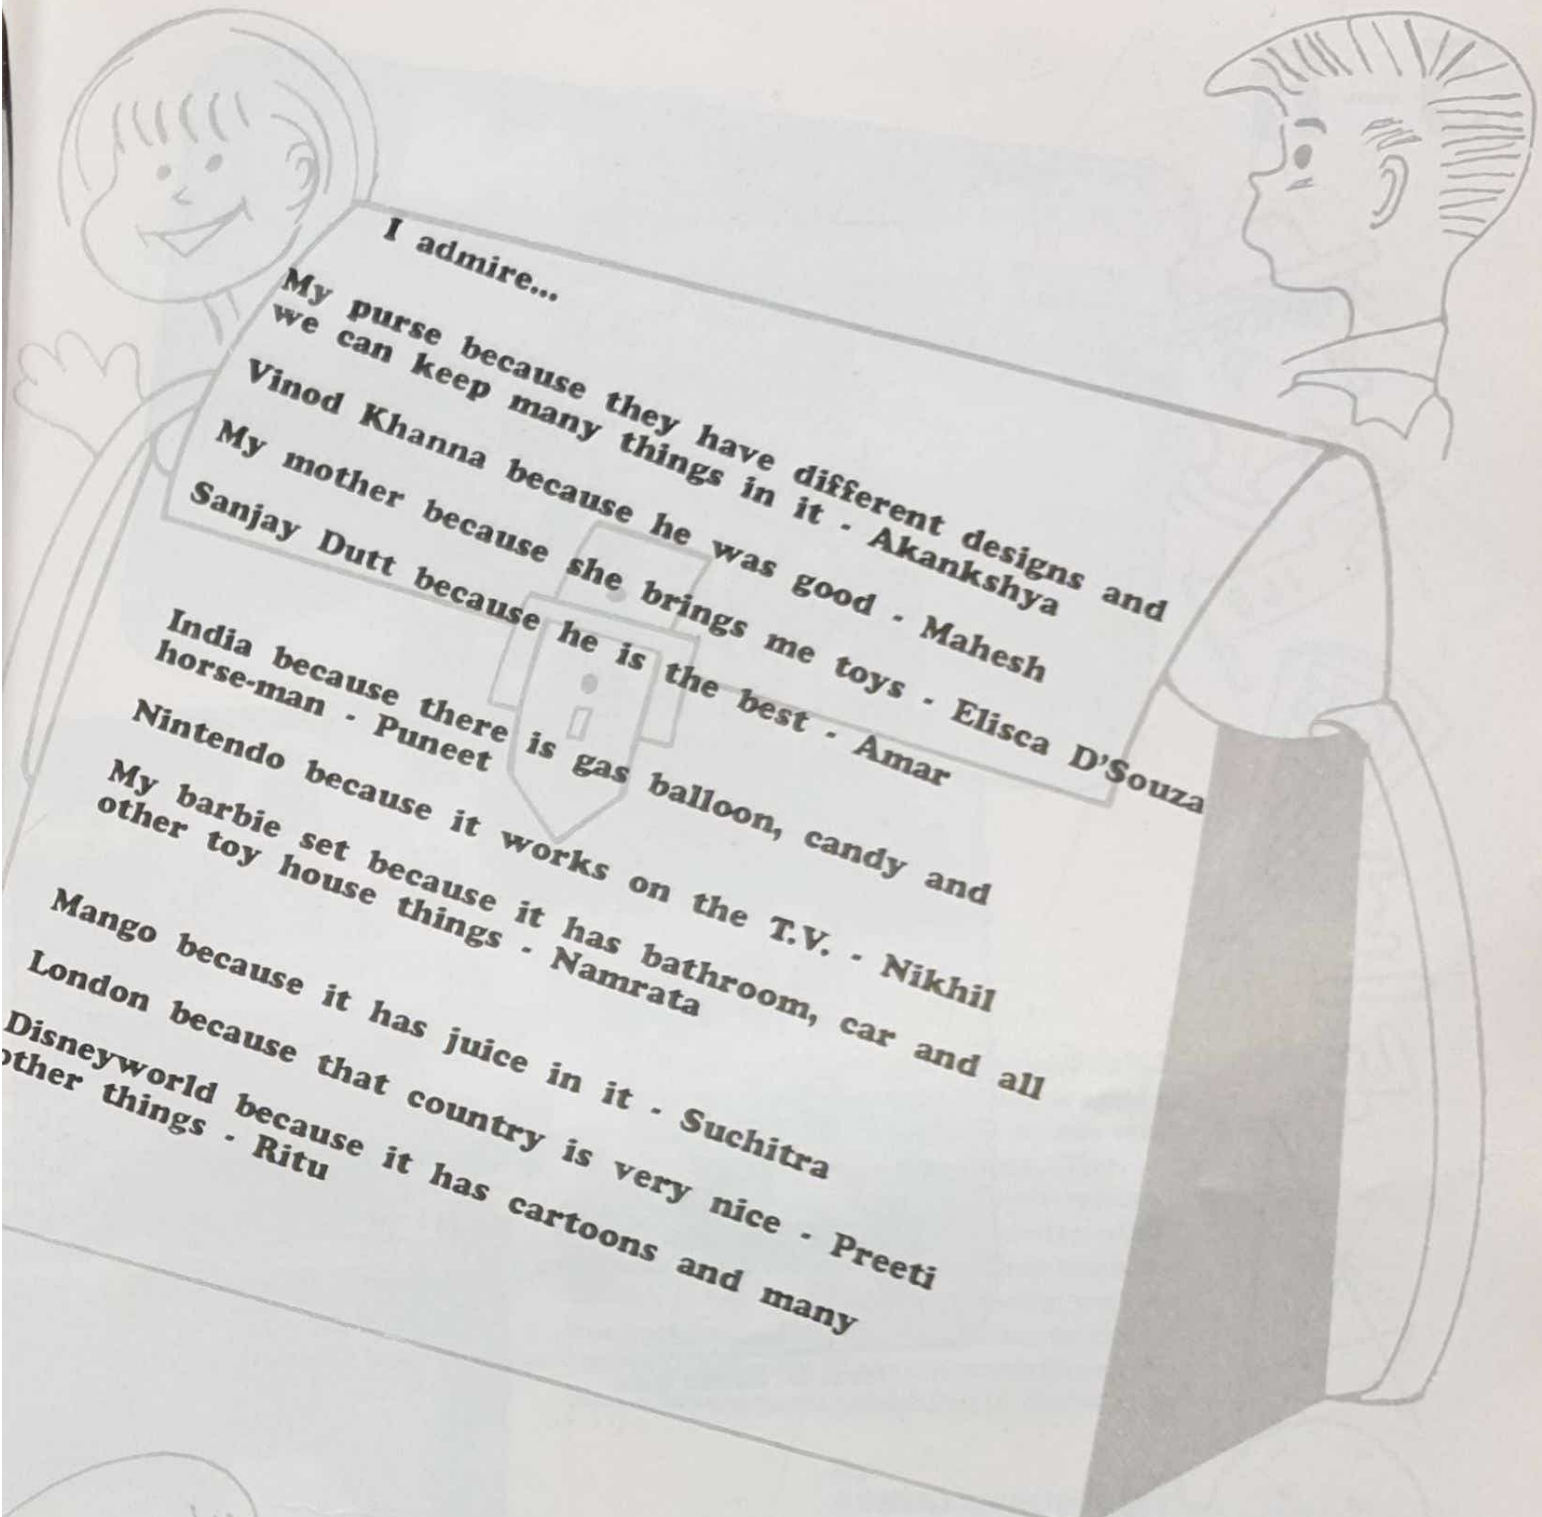 I admire...
My purse because they have different designs and
we can keep many things in it - Akankshya
Vinod Khanna because he was good - Mahesh
My mother because she brings me toys - Elisca D'Souza
Sanjay Dutt because he is the best - Amar
India because there is gas balloon, candy and
horse-man - Puneet
Nintendo because it works on the T.V. - Nikhil
My barbie set because it has bathroom, car and all
other toy house things - Namrata
Mango because it has juice in it - Suchitra
London because that country is very nice - Preeti
Disneyworld because it has cartoons and many
other things - Ritu